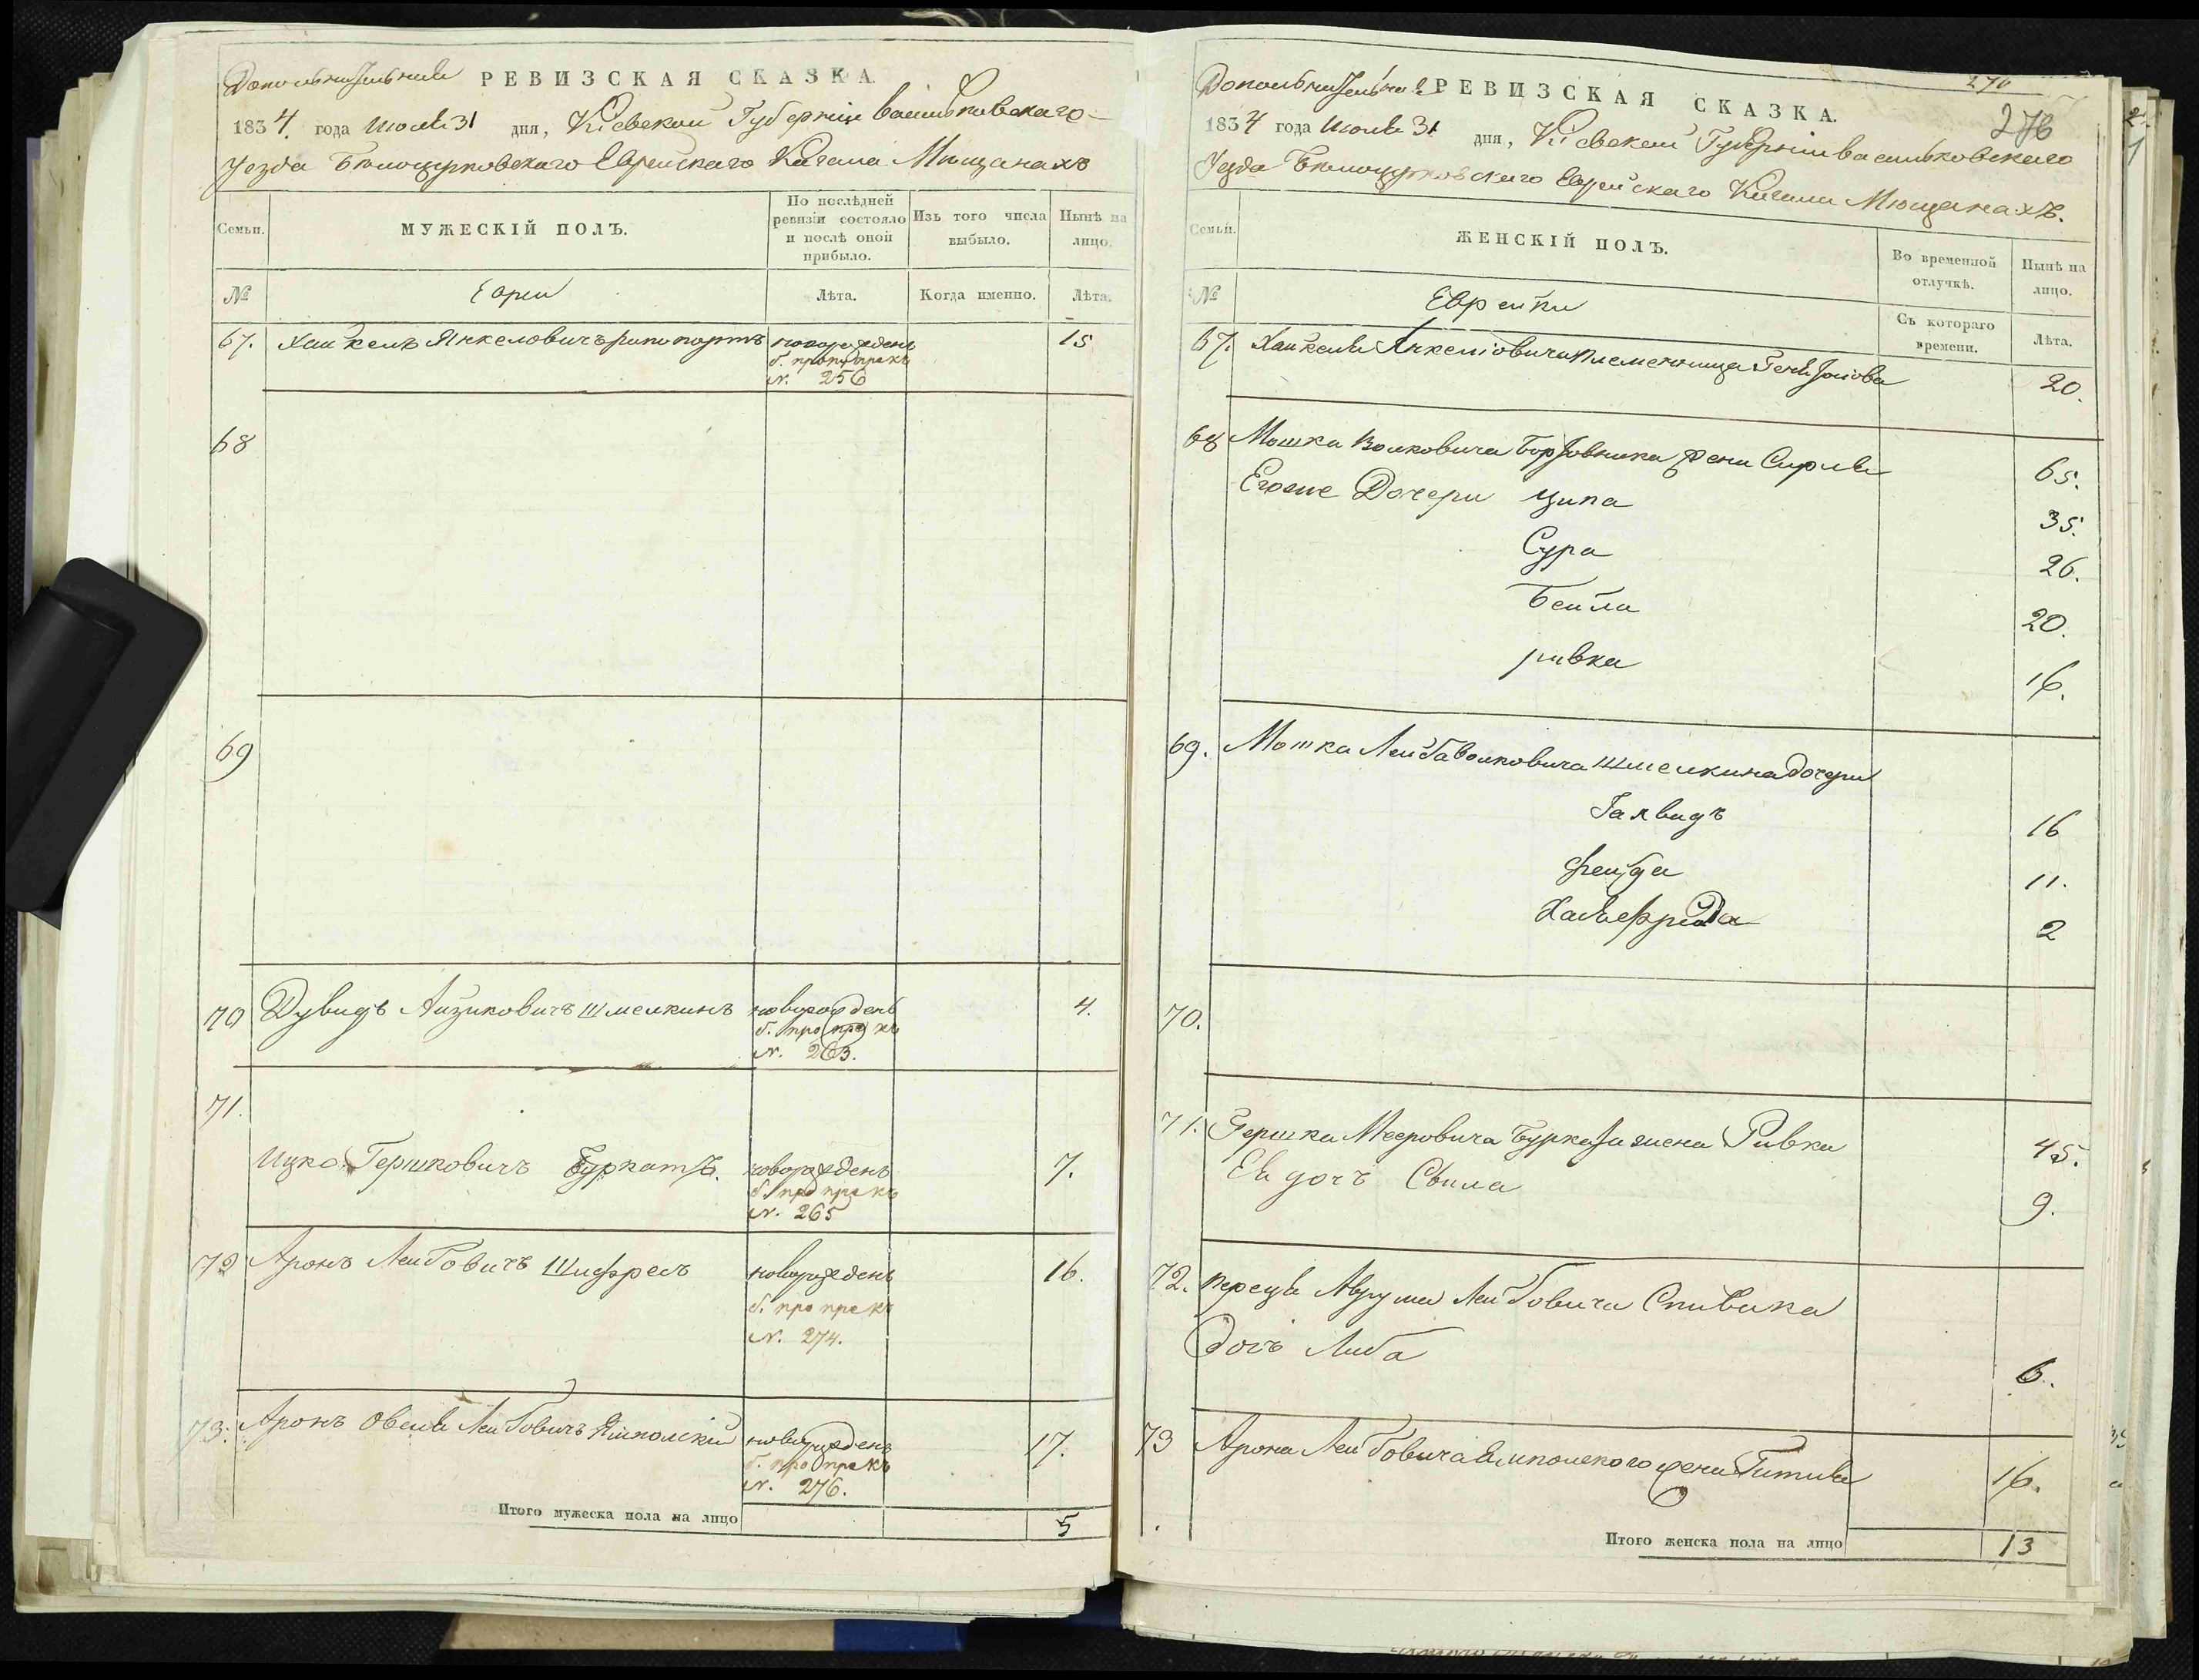 Дополнительная РЕВИЗСКАЯ СКАЗКА.
1834. года Июля 31 дня, Кіевской Губерніи Васильковскаго
Уезда Белоцерковскаго Еврейскаго Кагала Мещанахъ
Семьи.
МУЖЕСКІЙ ПОЛЪ.
По послѣдней ревизіи состояло и послѣ оной прибыло.
Изъ того числа выбыло.
Нынѣ на лицо.
№
Евреи
Лѣта.
Когда именно.
Лѣта.
67. Хайкель Янкеловичъ рапопортъ новорожденъ 15
№. 256
68
69
70 Дувидъ Айзиковичъ Шмелкинъ новорожденъ 4.
№. 263.
71.
Ицко Гершковичъ Буркатъ. новорожденъ 7.
№. 265
72 Аронъ Лейбовичъ Шифрелъ новорожденъ 16.
№. 274.
73. Аронъ Овсей Лейбовичъ Ямпольскій новорожденъ 17.
№. 276.
Итого мужеска пола на лицо 5
270
276
Дополнительная РЕВИЗСКАЯ СКАЗКА.
1834 года Июля 31 дня, Кіевской Губерніи Васильковскаго
Уезда Белоцерковскаго Еврейскаго Кагала Мещанахъ.
Семьи.
ЖЕНСКІЙ ПОЛЪ.
Во временной отлучкѣ.
Нынѣ на лицо.
№
Еврейки
Съ котораго времени.
Лѣта.
67. Хайкеля Янкеліовича племенница Геня 20.
68 Мошка Волковича жена Сирля 65.
Егоже Дочери Ципа 35.
Сура 26.
Бейла 20.
ривка 16.
69. Мошка Лейба Волковича Шмелкина дочери
16
Фейга 11.
Хая Фрида 2
70.
71. Гершка Мееровича Бурката жена Ривка 45.
Ея дочъ Свила 9.
72. Переця Аврума Лейбовича Спивака
Дочъ Либа 6.
73 Арона Лейбовича Ямпольского жена Гитля 16.
Итого женска пола на лицо 13